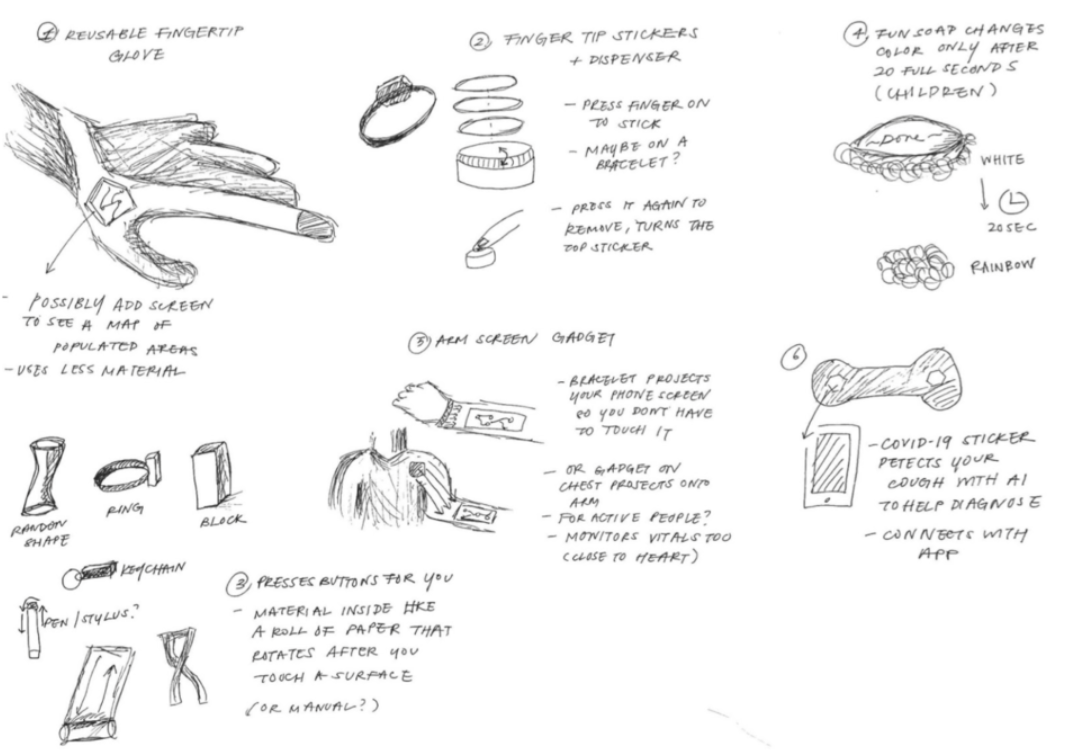 1 REUSABLE FINGERTIP
GLOVE
- POSSIBLY ADD SCREEN
TO SEE A MAP OF
POPULATED AREAS
- USES LESS MATERIAL
2 FINGER TIP STICKERS
+ DISPENSER
- PRESS FINGER ON
TO STICK
- MAYBE ON A
BRACELET?
- PRESS IT AGAIN TO
REMOVE, TURNS THE
TOP STICKER
4 FUN SOAP CHANGES
COLOR ONLY AFTER
20 FULL SECONDS
(CHILDREN)
~DONE~
WHITE
20SEC
RAINBOW
5 ARM SCREEN GADGET
- BRACELET PROJECTS
YOUR PHONE SCREEN
SO YOU DONT HAVE
TO TOUCH IT
- OR GADGET ON
CHEST PROJECTS ONTO
ARM
- FOR ACTIVE PEOPLE?
- MONITORS VITALS TOO
(CLOSE TO HEART)
6
- COVID-19 STICKER
DETECTS YOUR
COUGH WITH AI
TO HELP DIAGNOSE
- CONNECTS WITH
APP
RANDOM
SHAPE
RING
BLOCK
KEYCHAIN
PEN/STYLUS?
3 PRESSES BUTTONS FOR YOU
- MATERIAL INSIDE LIKE
A ROLL OF PAPER THAT
ROTATES AFTER YOU
TOUCH A SURFACE
(OR MANUAL?)